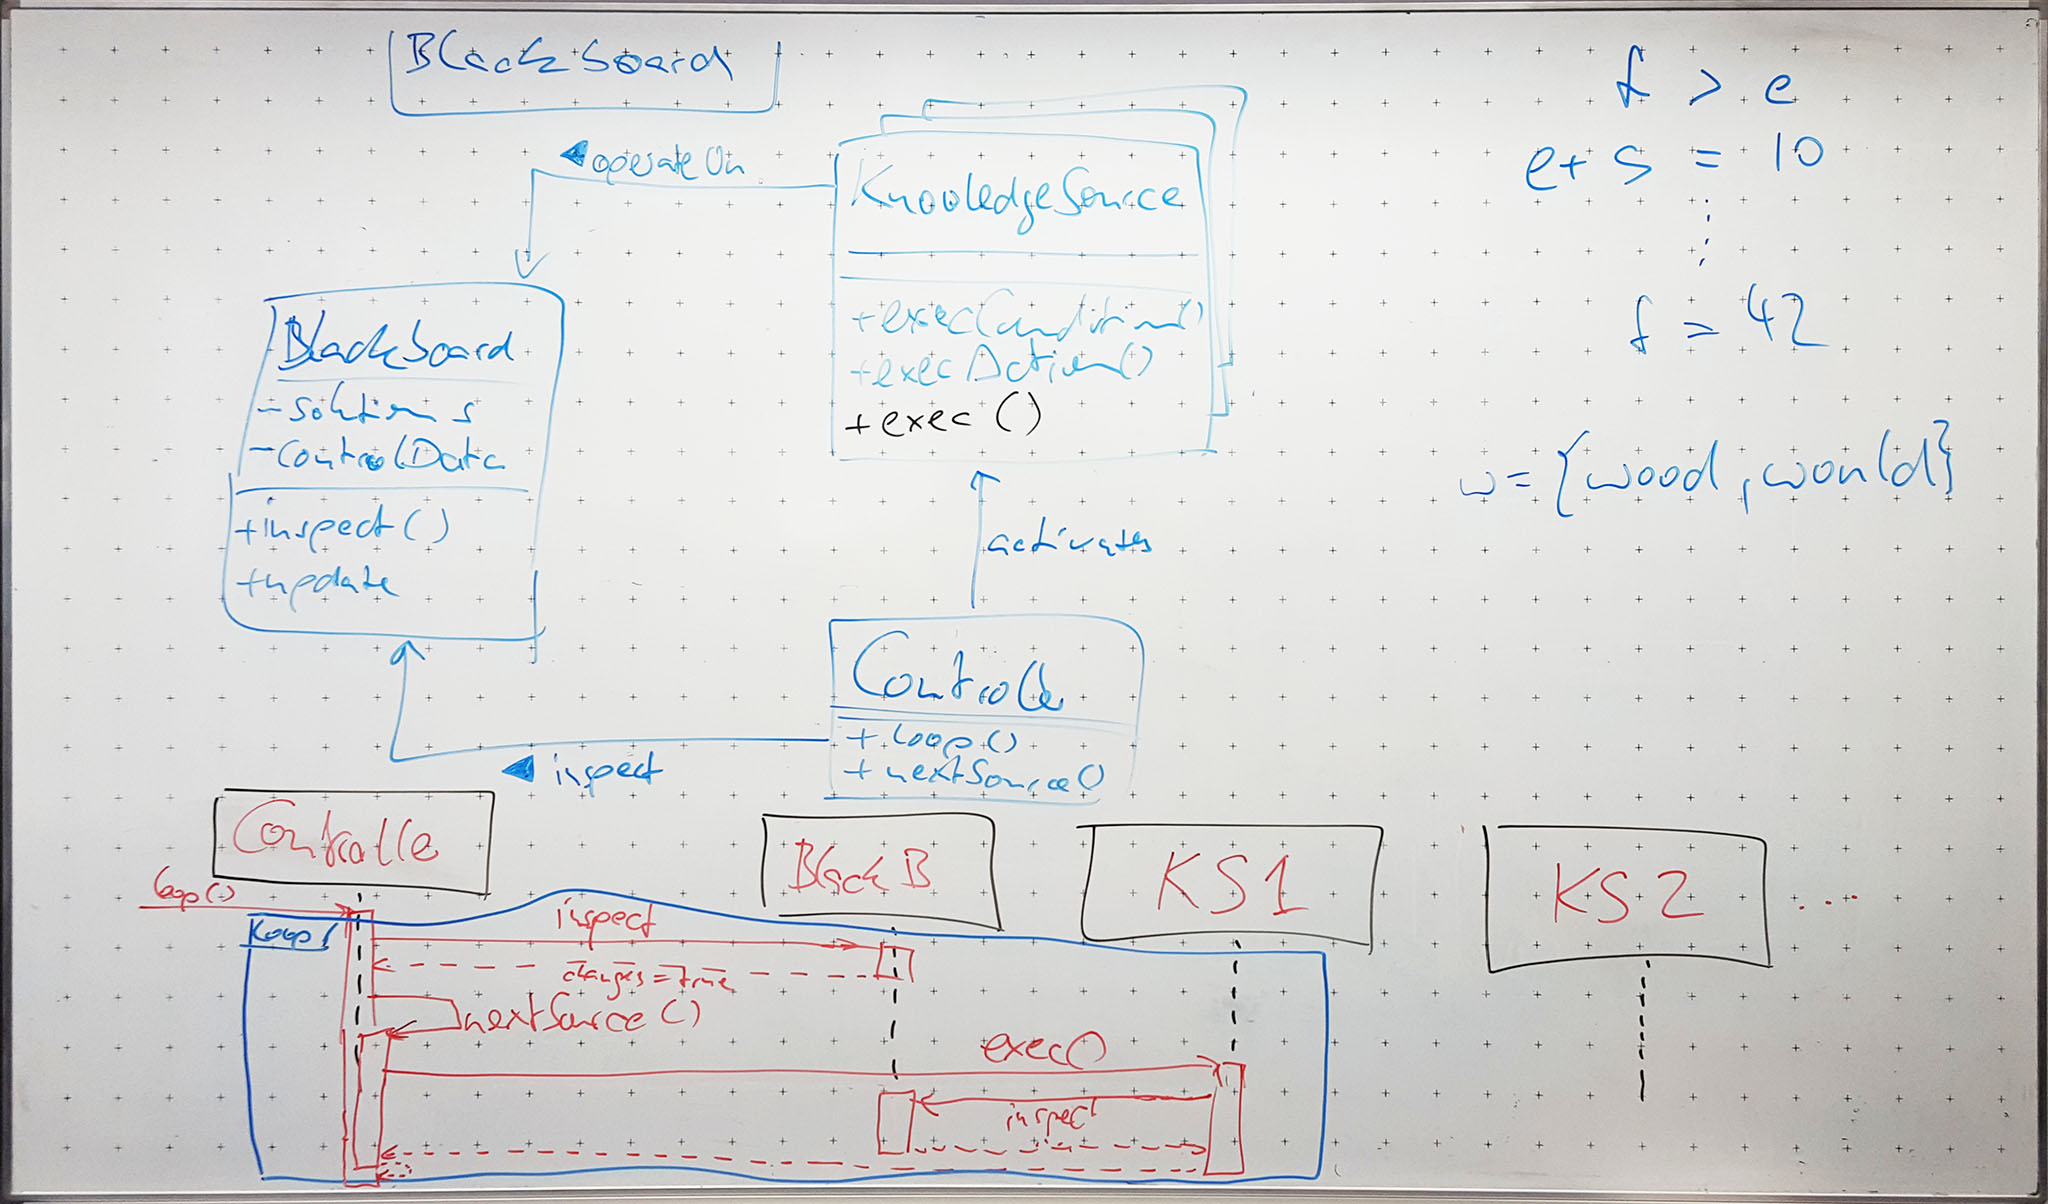 Blackboard
operateOn
KnowledgeSource
+execCondition()
+execAction()
+exec()
Blackboard
-solutions
-controlData
+inspect()
+update
activates
Controlle
+loop()
+nextSource()
inspect
f > e
e+s = 10
f = 42
w={wood, would}
Controlle
BlackB
KS1
KS2
...
loop()
loop
inspect
changes=true
nextSource()
exec()
inspect